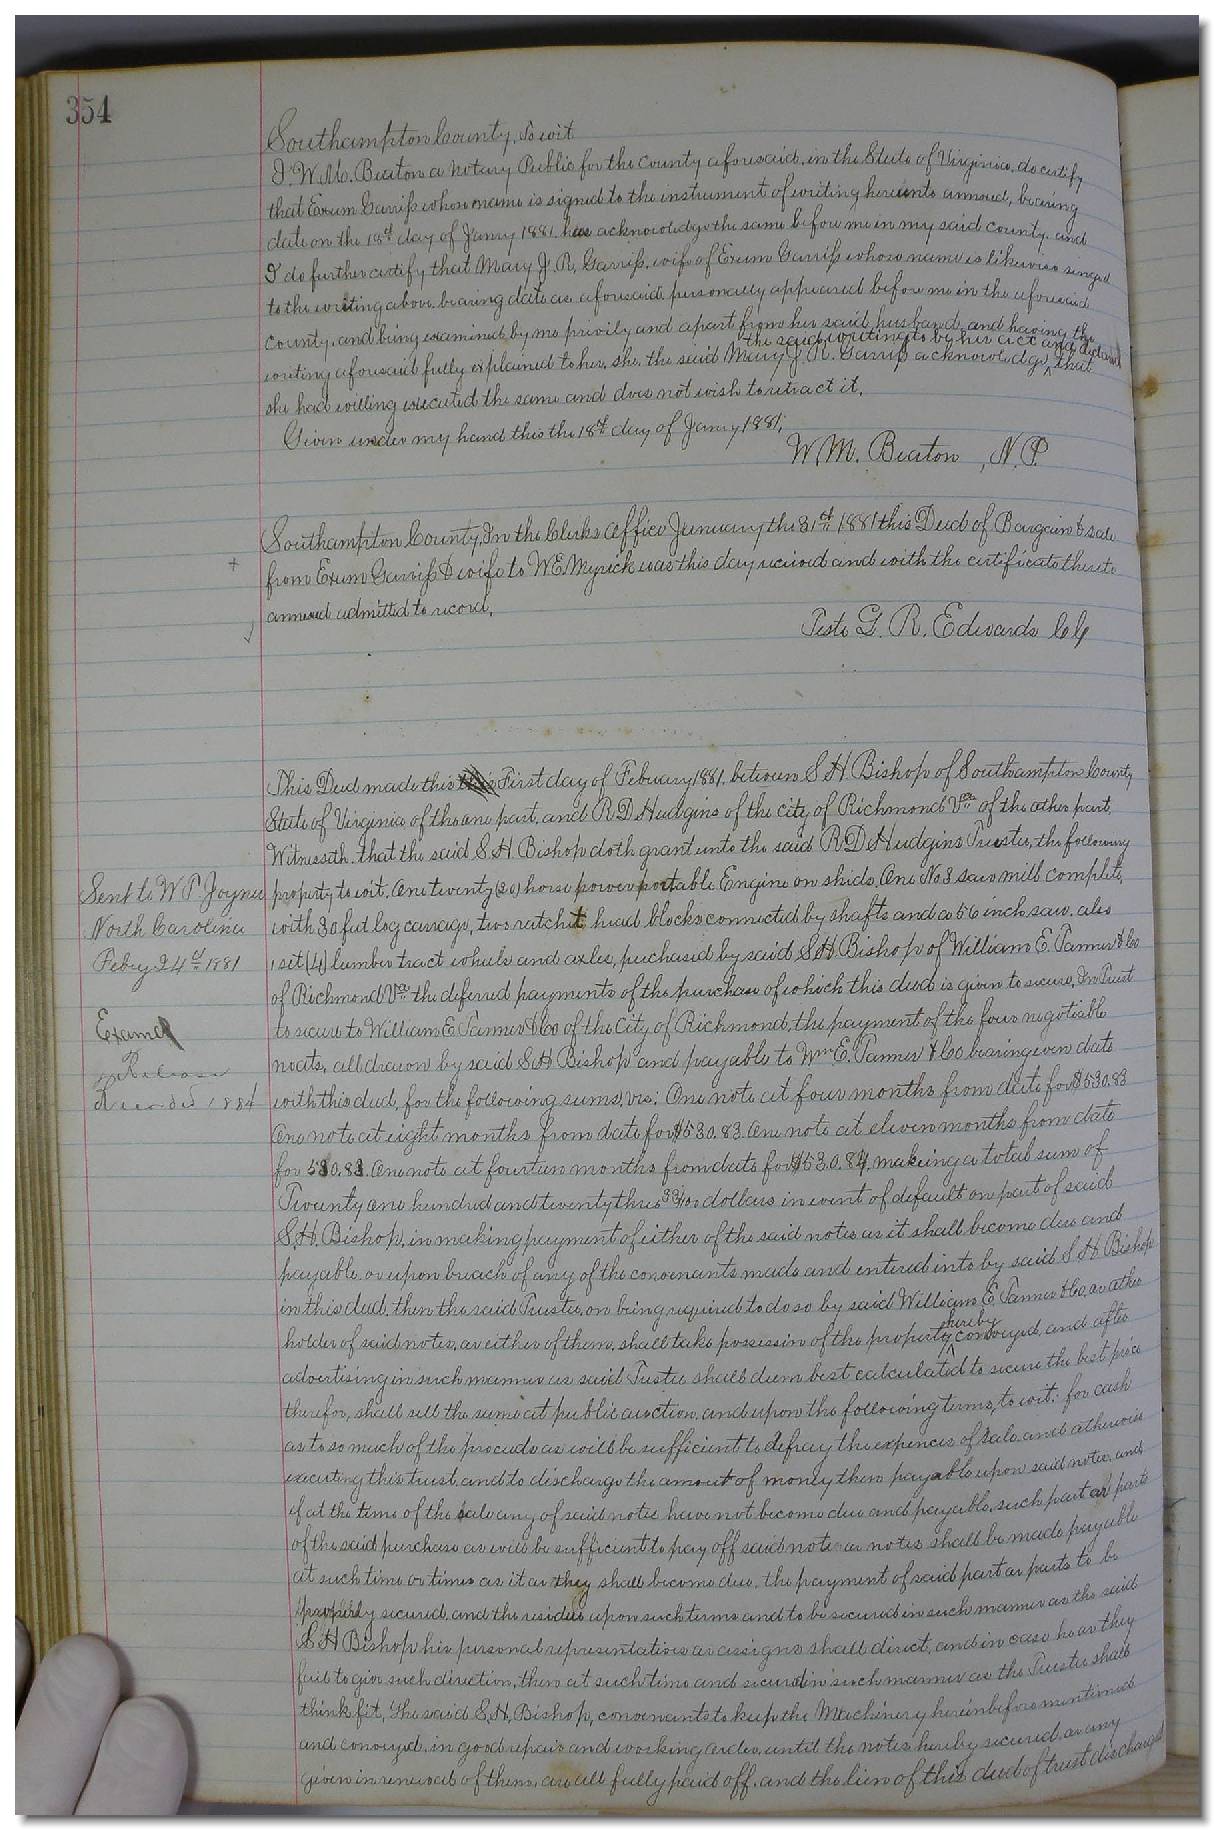 354
Southampton County, To wit
I. W.M. Beaton a Notary Public for the County aforesaid, in the State of Virginia, do certify
that Exum Garriss whose name is signed to the instrument of writing hereunto annexed, bearing
date on the 18th day of Janry 1881 has acknowledge the same before me in my said county, and
I do further certify that Mary J. R. Garriss, wife of Exum Garriss whose name is likewise singed
to the writing above bearing date as aforesaid personally appeared before me in the aforesaid
County, and being examined by me privily and apart from her said husband, and having the
the said writing to by her act and declared
writing aforesaid fully explained to her, she, the said Mary J. R. Garriss acknowledge ^ that
she had willing executed the same and does not wish to retract it.
Given under my hand this the 18th day of Janry 1881,
W. M. Beaton , N. P.
Southampton County, In the Clerks Office January the 31st 1881 this Deed of Bargain & sale
from Exum Garriss & wife to W E Myrick was this day received and with the certificate thereto
annexed admitted to record.
Teste G. R. Edwards C C
This Deed made this First day of February 1881, between S H Bishop of Southampton County,
State of Virginia of the one part, and R D Hudgins of the city of Richmond Va of the other part,
Witnesseth, that the said S. H. Bishop doth grant unto the said R D Hudgins Trustee, the following
Sent to W P Joyner
property to wit. One twenty (20) horse power portable Engine on skids, One No 3 saw mill complete,
North Carolina
with 30 feet log carriage, two ratchet head blocks connected by shafts and a 56 inch saw, also
Febry 24th 1881
1 set (4) lumber tract wheels and axles, purchased by said S H Bishop of William E. Tanner & Co
of Richmond Va the deferred payments of the purchase of which this deed is given to secure, In Trust
Examd
to secure to William E Tanner & Co of the City of Richmond, the payment of the four negotiable
Release
noats, all drawn by said S H Bishop and payable to Wm E. Tanner & Co bearing even date
1884
with this deed, for the following sums, viz: One note at four months from date for $530.83
One note at eight months from date for $530.83. One note at eleven months from date
for 530.83. One note at fourteen months from date for $530.84, makeing a total sum of
Twenty one hundred and twenty three 33/100 dollars in event of default on part of said
S. H. Bishop, in making payment of either of the said notes as it shall become due and
payable or upon breach of any of the convenants made and entered into by said S H Bishop
in this deed, then the said Trustee, on being required to do so by said William E Tanner & Co, or other
hereby
holder of said notes, or either of them, shall take possession of the property ^ conveyed, and after
advertising in such manner as said Trustee shall deem best calculated to secure the best price
therefor, shall sell the same at public auction, and upon the following terms, to wit: for cash
as to so much of the proceeds as will be sufficient to defray the expences of sale, and otherwise
executing this trust, and to discharge the amount of money then payable upon said notes, and
if at the time of the sale any of said notes have not become due and payable, such part or parts
of the said purchase as will be sufficient to pay off said note or notes shall be made payable
at such time or times as it or they shall become due, the payment of said part or parts to be
properly secured, and the residue upon such terms and to be secured in such manner as the said
S H Bishop his personal representative or assigns shall direct, and in case he or they
fail to give such direction, then at such time and secured in such manner as the Trustee shall
think fit, The said S. H. Bishop, convenants to keep the Machinery hereinbefore mentioned
and conveyed, in good repair and working order, until the notes hereby secured, or any
given in renewal of them, are all fully paid off, and the lien of this deed of trust discharged